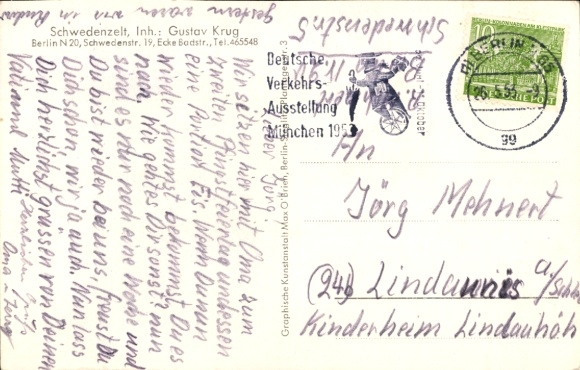 gestern waren wir in
Schwedenzelt, Inh.: Gustav Krug
Berlin N 20, Schwedenstr. 19, Ecke Badstr., Tel. 465548
Lieber Jörg!
Wir sitzen hier mit Oma zum
zweiten Pfingstfeiertag u. essen
eine Portion Eis. Wenn Du nun
wieder kommst bekommst Du es
nun. Wie geht es Dir sonst? nun
sind es nur noch eine Woche und
Du bist wieder bei uns, freust Du
Dich schon, wir ja auch. Nun lass
Dich herzlichst grüssen von Deinem
Vati und Mutti
Herzlichen Gruß
Oma
Graphische Kunstanstalt Max O'Brien, Berlin-Steglitz
Schwedenstr 5
Deutsche
Verkehrs-
Ausstellung
München 1953
Oktober
10
BERLIN
26.5.53
An
Jörg Mehnert
(24b) Lindau
Kinderheim Lindauhöh